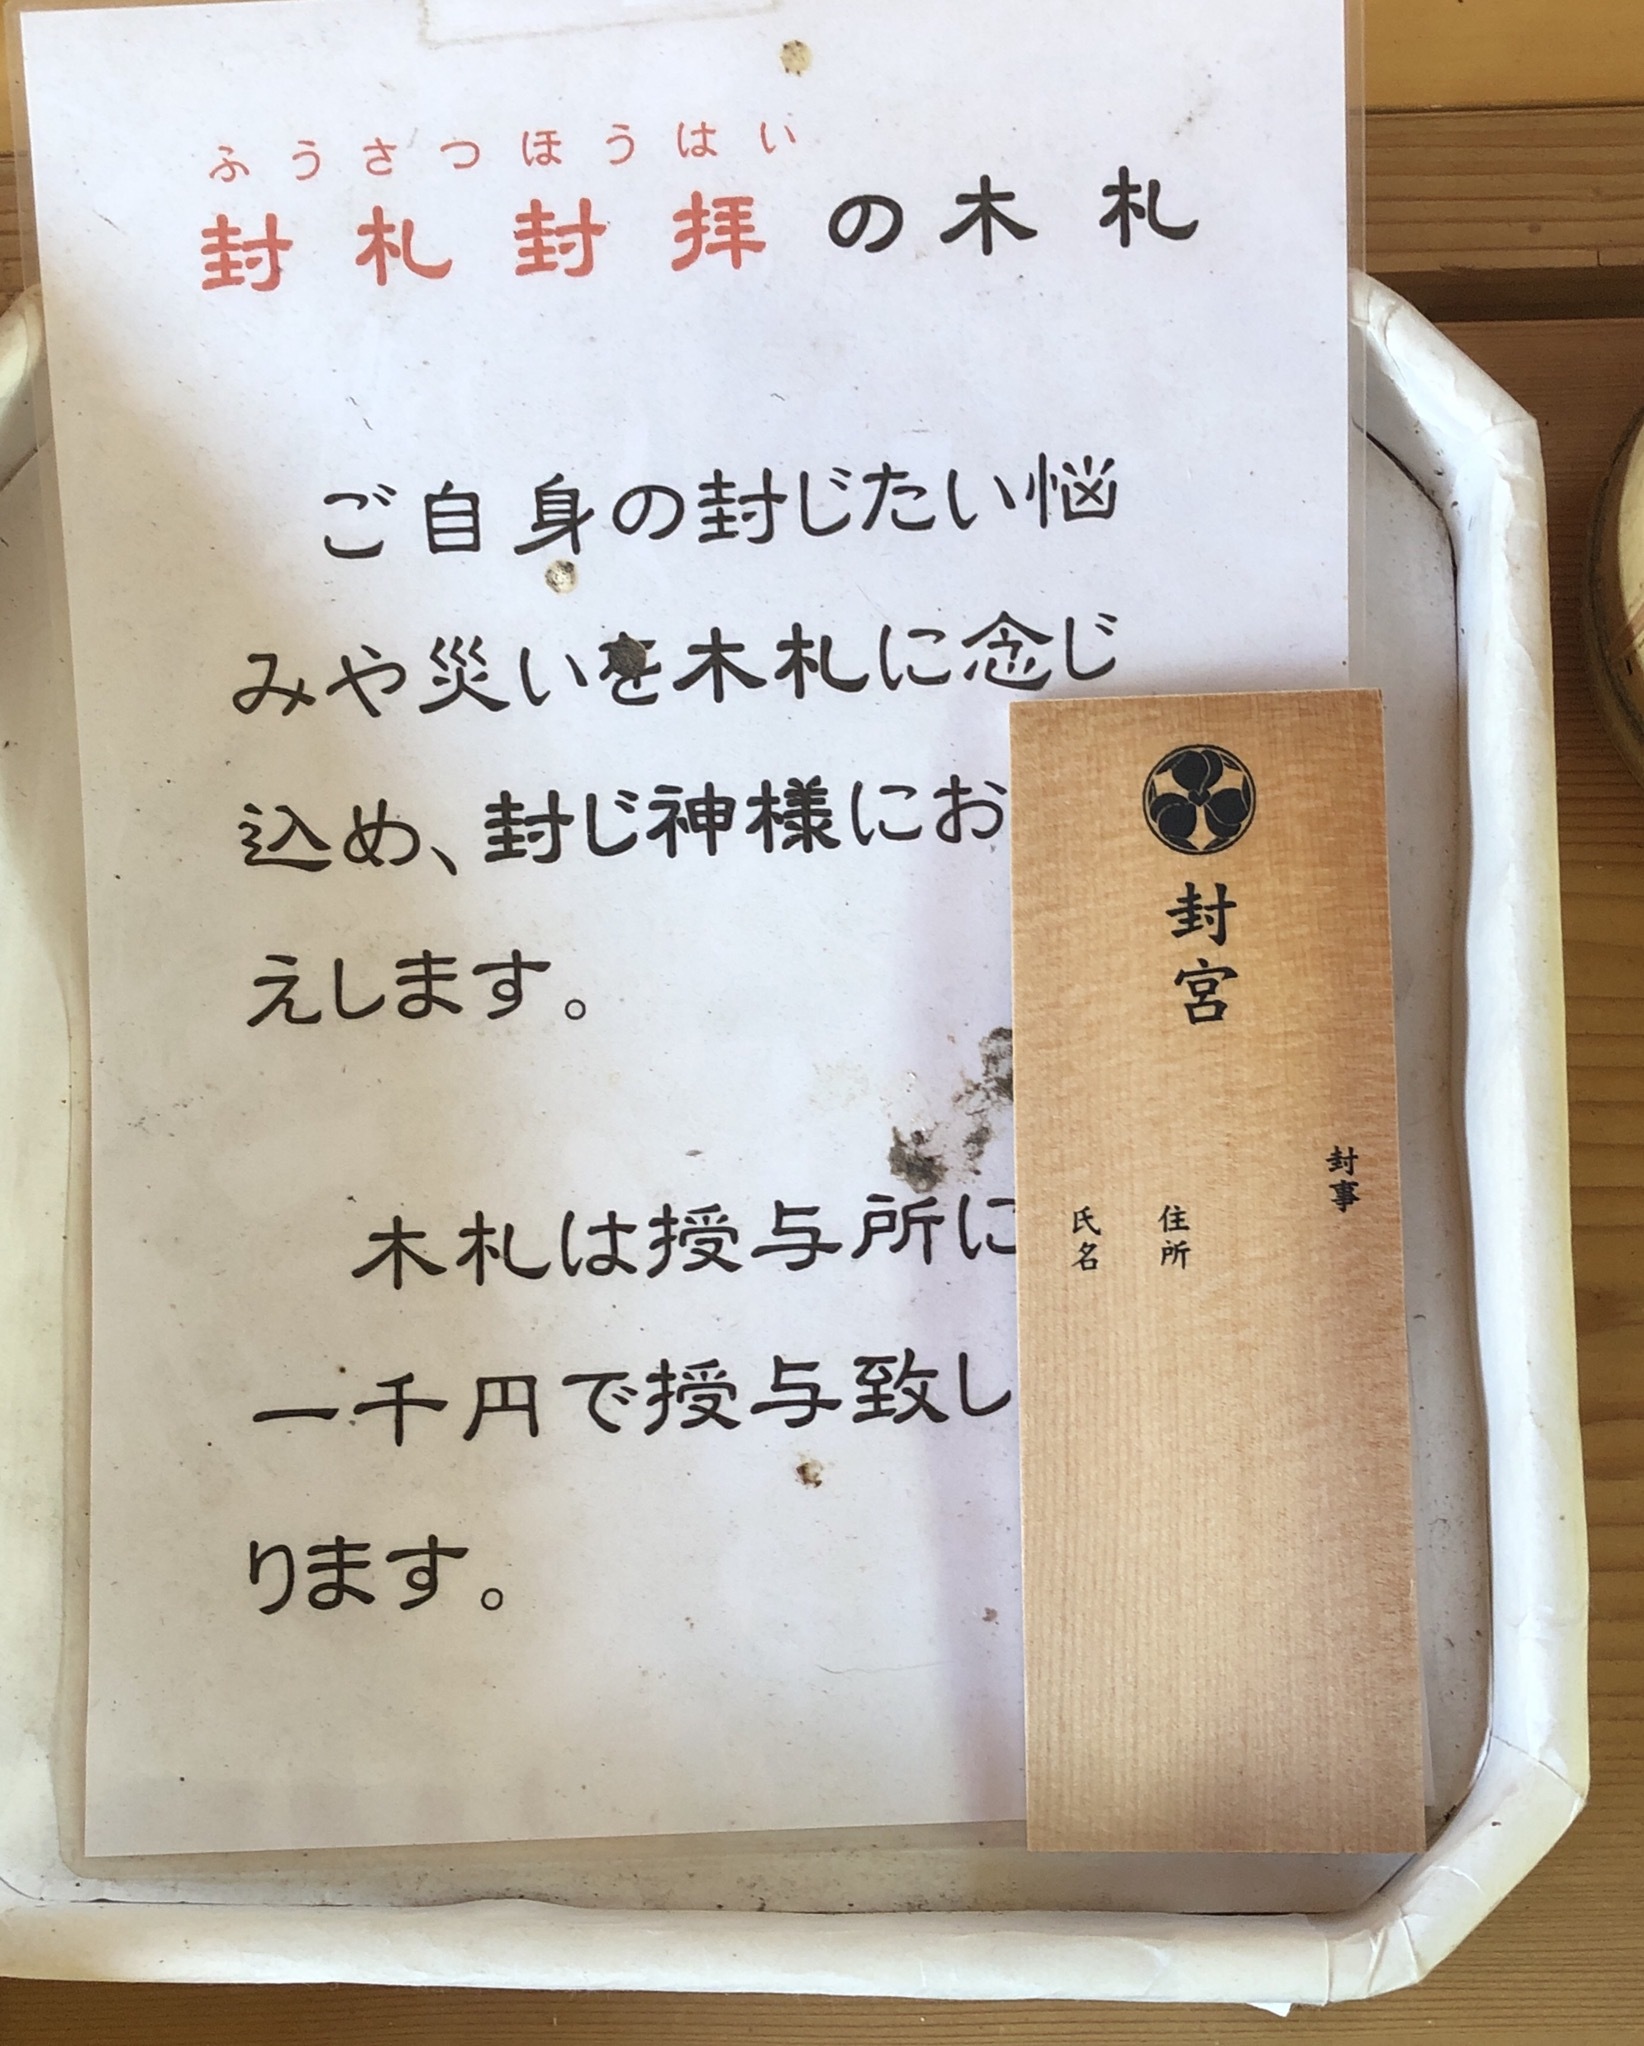 ふうさつほうはい
封札封拝の木札
ご自身の封じたい悩
みや災いを木札に念じ
込め、封じ神様にお
えします。
木札は授与所に
一千円で授与致し
ります。
封宮
封事
住所
氏名